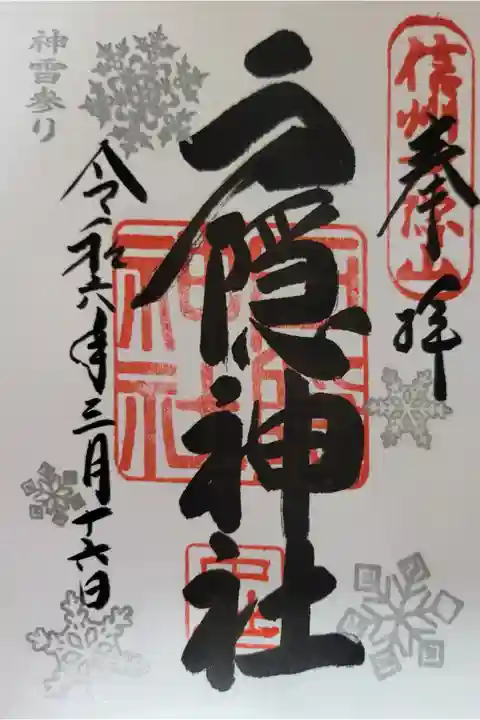 信州戸隠山
奉拝
戸隠神社
中社
令和六年三月十六日
神雪参り